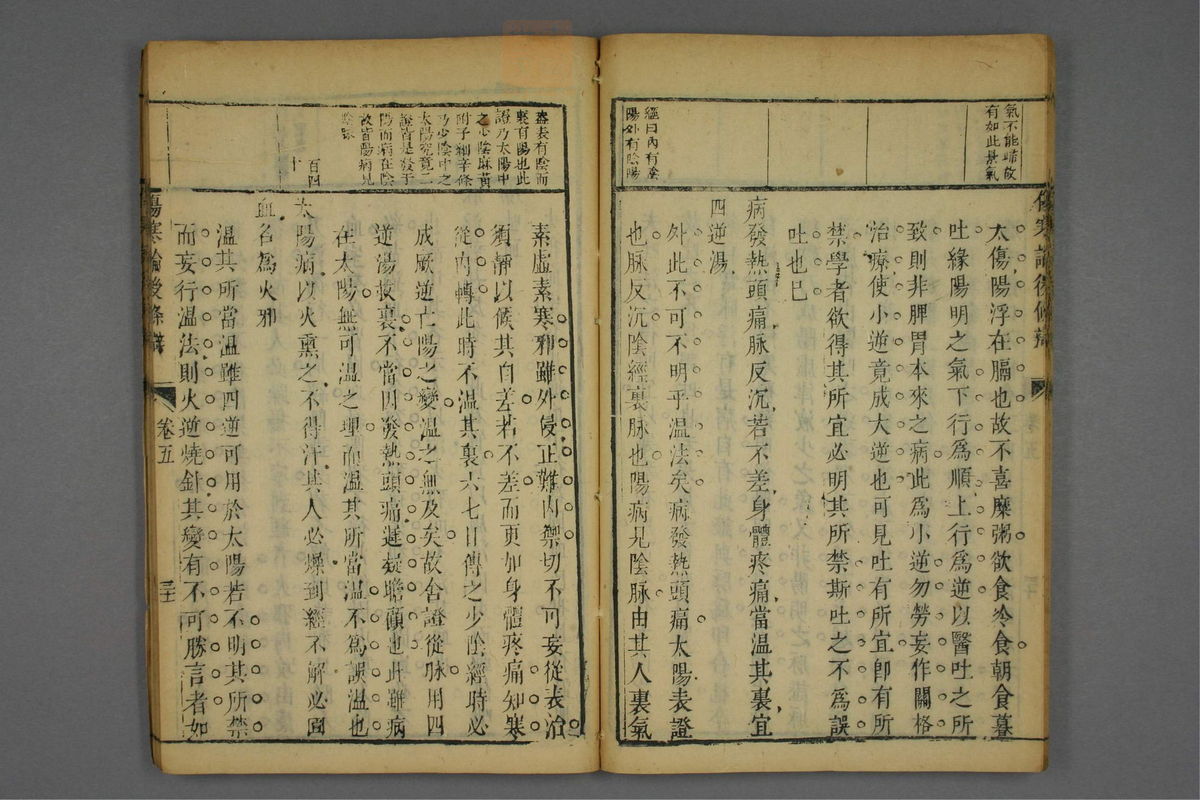 氣不能晞故
有如此景氣
經曰內有陰
陽外有陰陽
傷寒論後條辯
太傷陽浮在膈也故不喜糜粥欲食冷食朝食暮
吐緣陽明之氣下行爲順上行爲逆以醫吐之所
致則非脾胃本來之病此爲小逆勿勞妄作關格
治療使小逆竟成大逆也可見吐有所宜卽有所
禁學者欲得其所宜必明其所禁斯吐之不爲誤
吐也已
病發熱頭痛脉反沉若不差身體疼痛當溫其裏宜
四逆湯
外此不可不明乎溫法矣病發熱頭痛太陽表證
也脉反沉陰經裏脉也陽病見陰脉由其人裏氣
蓋表有陰而
裏有陽也此
證乃太陽中
之少陰麻黃
附子細辛條
乃少陰中之
太陽究竟二
證皆是發于
陽而病在陰
故皆陽病見
陰脉
百四
十
素虛素寒邪雖外侵正難內禦切不可妄從表治
須靜以候其自差若不差而更加身體疼痛知寒
從內轉此時不溫其裏六七日傳之少陰經時必
成厥逆亡陽之變溫之無及矣故舍證從脉用四
逆湯救裏不當因發熱頭痛遲疑瞻顧也此雖病
在太陽無可溫之理而溫其所當溫不爲誤溫也
太陽病以火熏之不得汗其人必燥到經不解必圊
血名爲火邪
溫其所當溫雖四逆可用於太陽若不明其所禁
而妄行溫法則火逆燒針其變有不可勝言者如
傷寒論後條辯
卷五